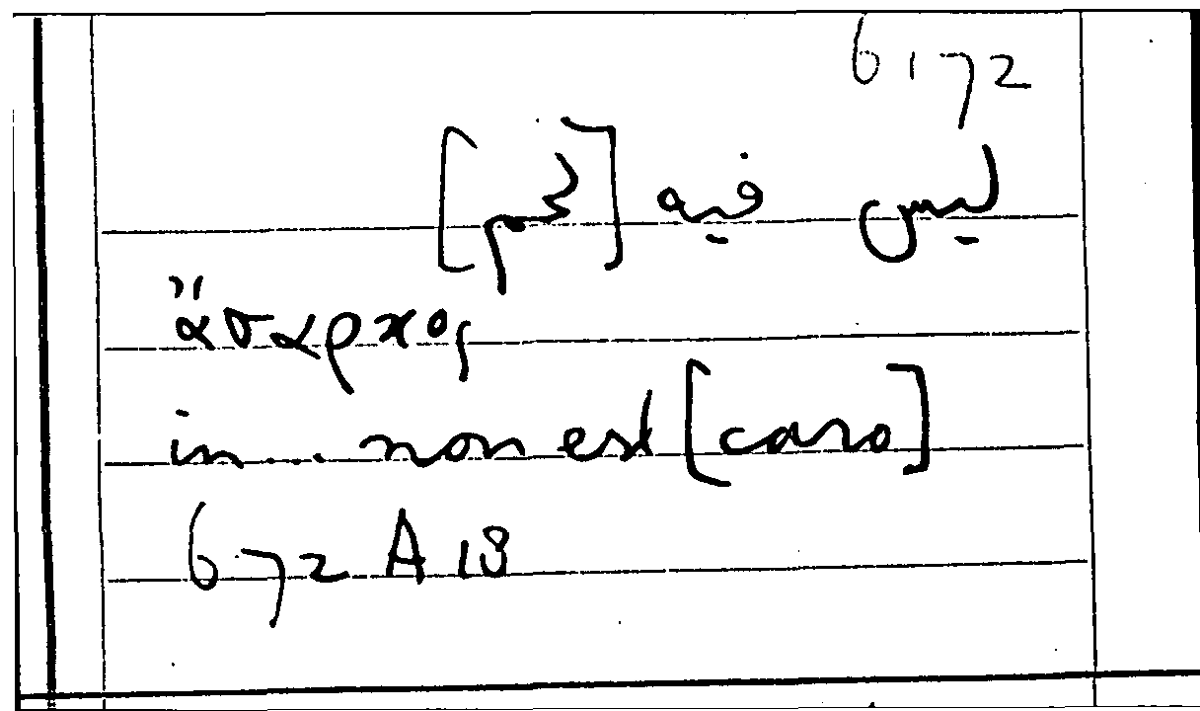 6172
ليس فيه [لحم]
ἄσαρκος
in... non est [caro]
672 A 18